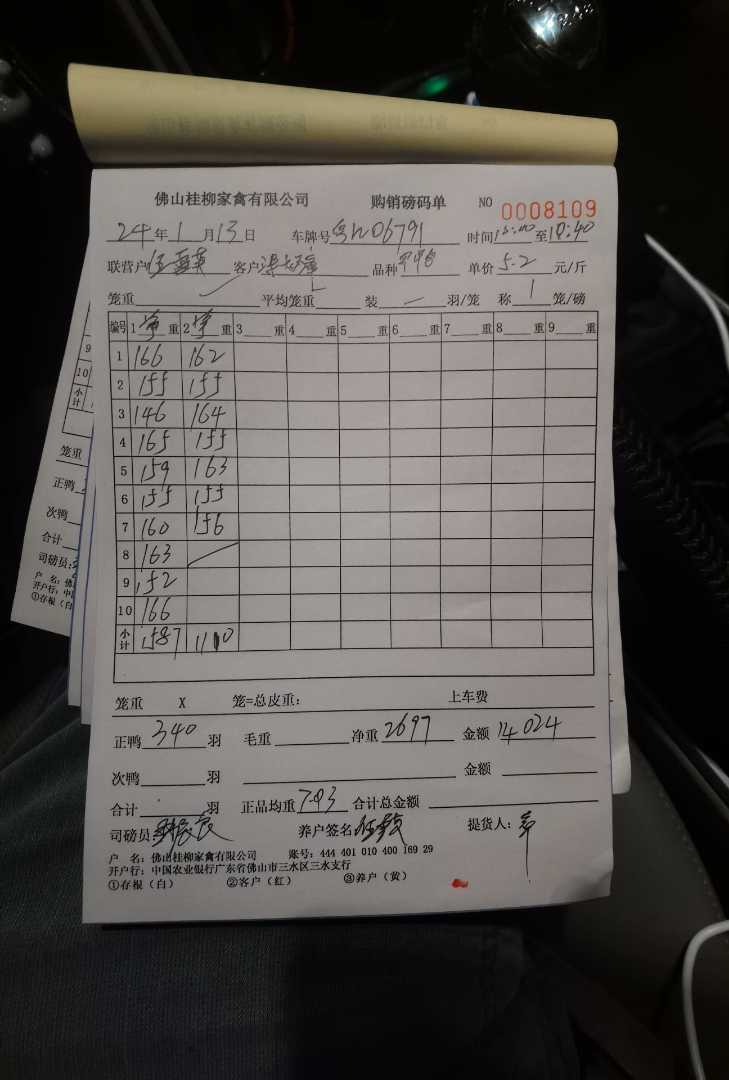 佛山桂柳家禽有限公司 购销磅码单 NO 0008109
24年1月13日 车牌号 06791 时间 至18:40
联营户 客户 品种 单价5.2元/斤
笼重 平均笼重 装 — 羽/笼 称 1 笼/磅
编号 1 净 重 2 净 重 3 重 4 重 5 重 6 重 7 重 8 重 9 重
1 166 162
2 155 155
3 146 164
4 165 155
5 159 163
6 155 155
7 160 156
8 163
9 152
10 166
小计 1587 1110
笼重 X 笼=总皮重: 上车费
正鸭 340 羽 毛重 净重 2697 金额 14024
次鸭 羽 金额
合计 羽 正品均重 7.93 合计总金额
司磅员: 养户签名: 提货人:
户 名: 佛山桂柳家禽有限公司 账号: 444 401 010 400 169 29
开户行: 中国农业银行广东省佛山市三水区三水支行
①存根（白） ②客户（红） ③养户（黄）
9
10
小计
笼重
正鸭
次鸭
合计
司磅员:
户 名:
开户行:
①存根（白